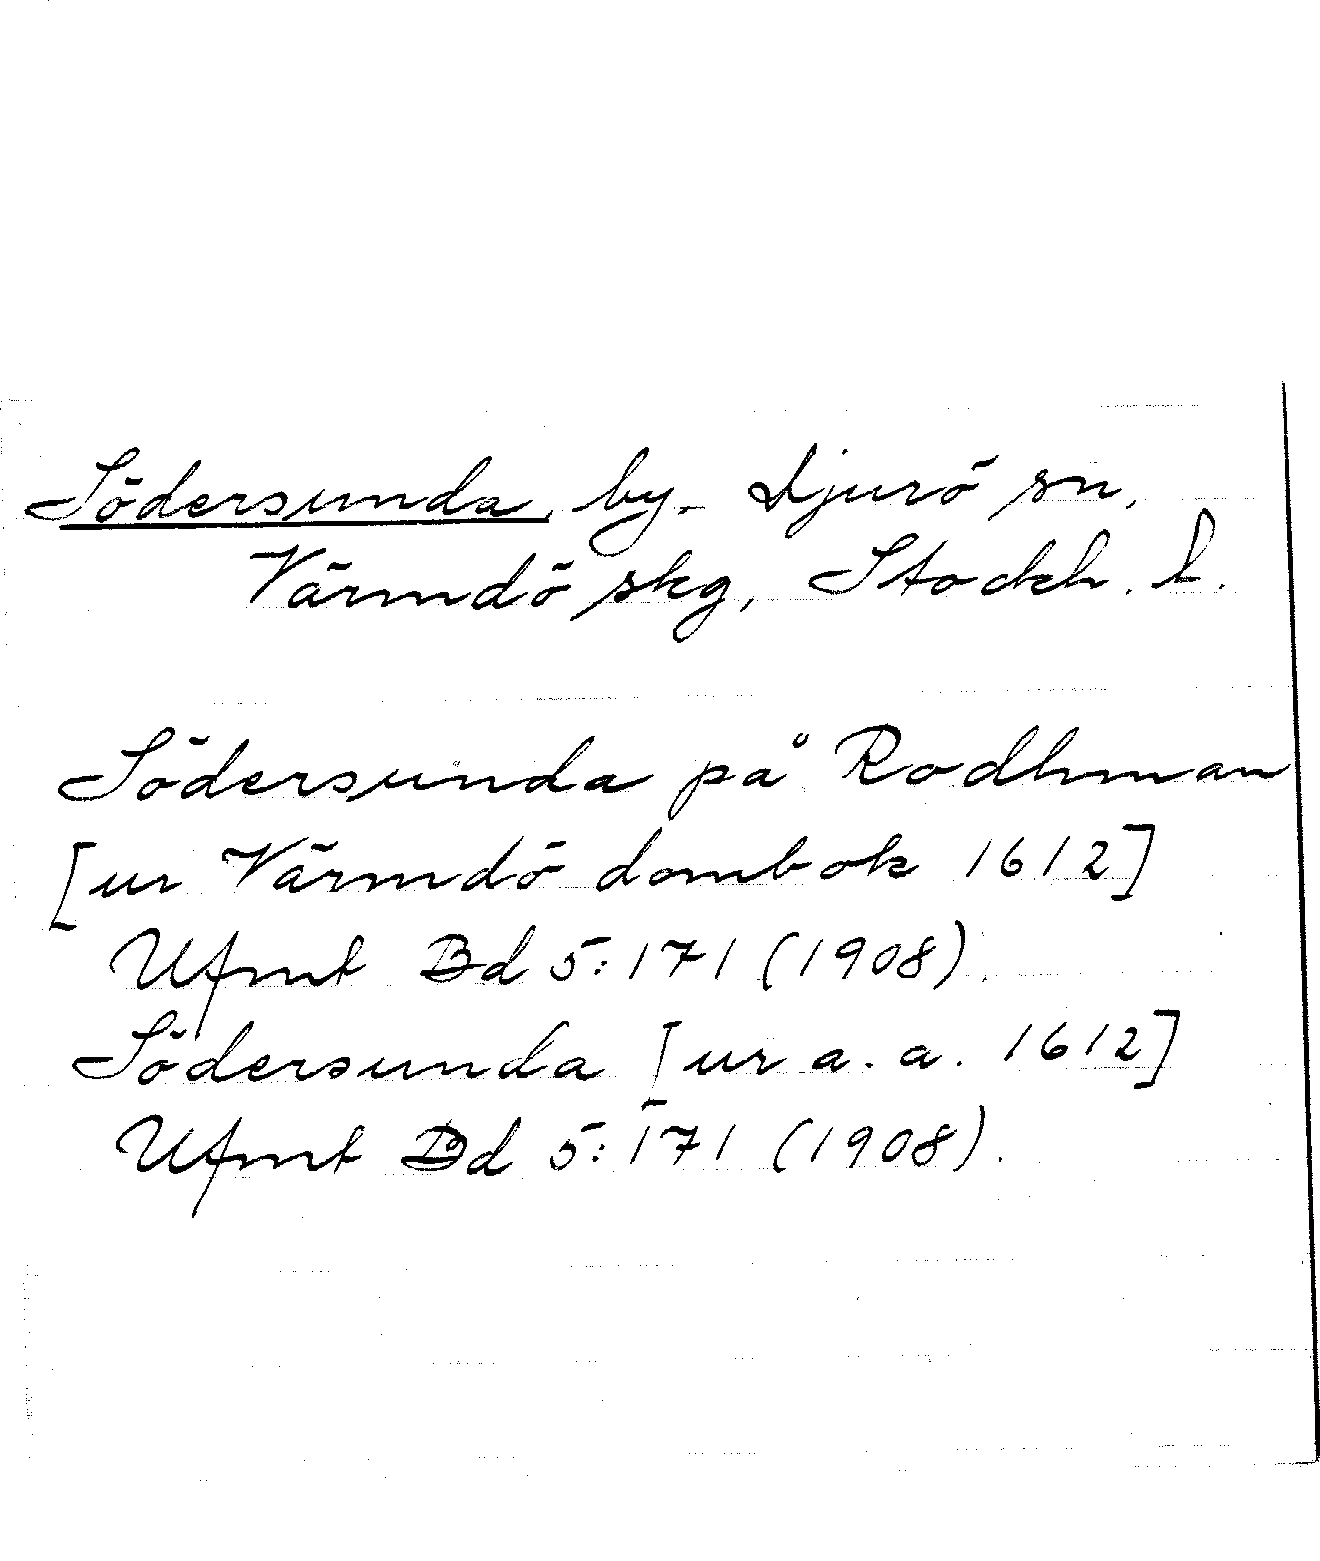 Södersunda, by. Djurö sn,
Värmdö skg, Stockh. l.
Södersunda på Rodhman
[ur Värmdö dombok 1612]
Ufmt Bd 5:171 (1908).
Södersunda [ur a. a. 1612]
Ufmt Bd 5:171 (1908).